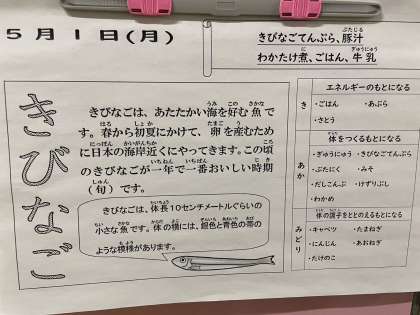 5月1日(月)
きびなごてんぷら、豚汁
わかたけ煮、ごはん、牛乳
きびなご
きびなごは、あたたかい海を好む魚で
す。春から初夏にかけて、卵を産むため
に日本の海岸近くにやってきます。この頃
のきびなごが一年で一番おいしい時期
(旬)です。
きびなごは、体長10センチメートルぐらいの
小さな魚です。体の横には、銀色と青色の帯の
ような模様があります。
エネルギーのもとになる
き
・ごはん ・あぶら
・さとう
体をつくるもとになる
あか
・ぎゅうにゅう ・きびなごてんぷら
・ぶたにく ・みそ
・だしこんぶ ・けずりぶし
・わかめ
体の調子をととのえるもとになる
みどり
・キャベツ ・たまねぎ
・にんじん ・あおねぎ
・たけのこ